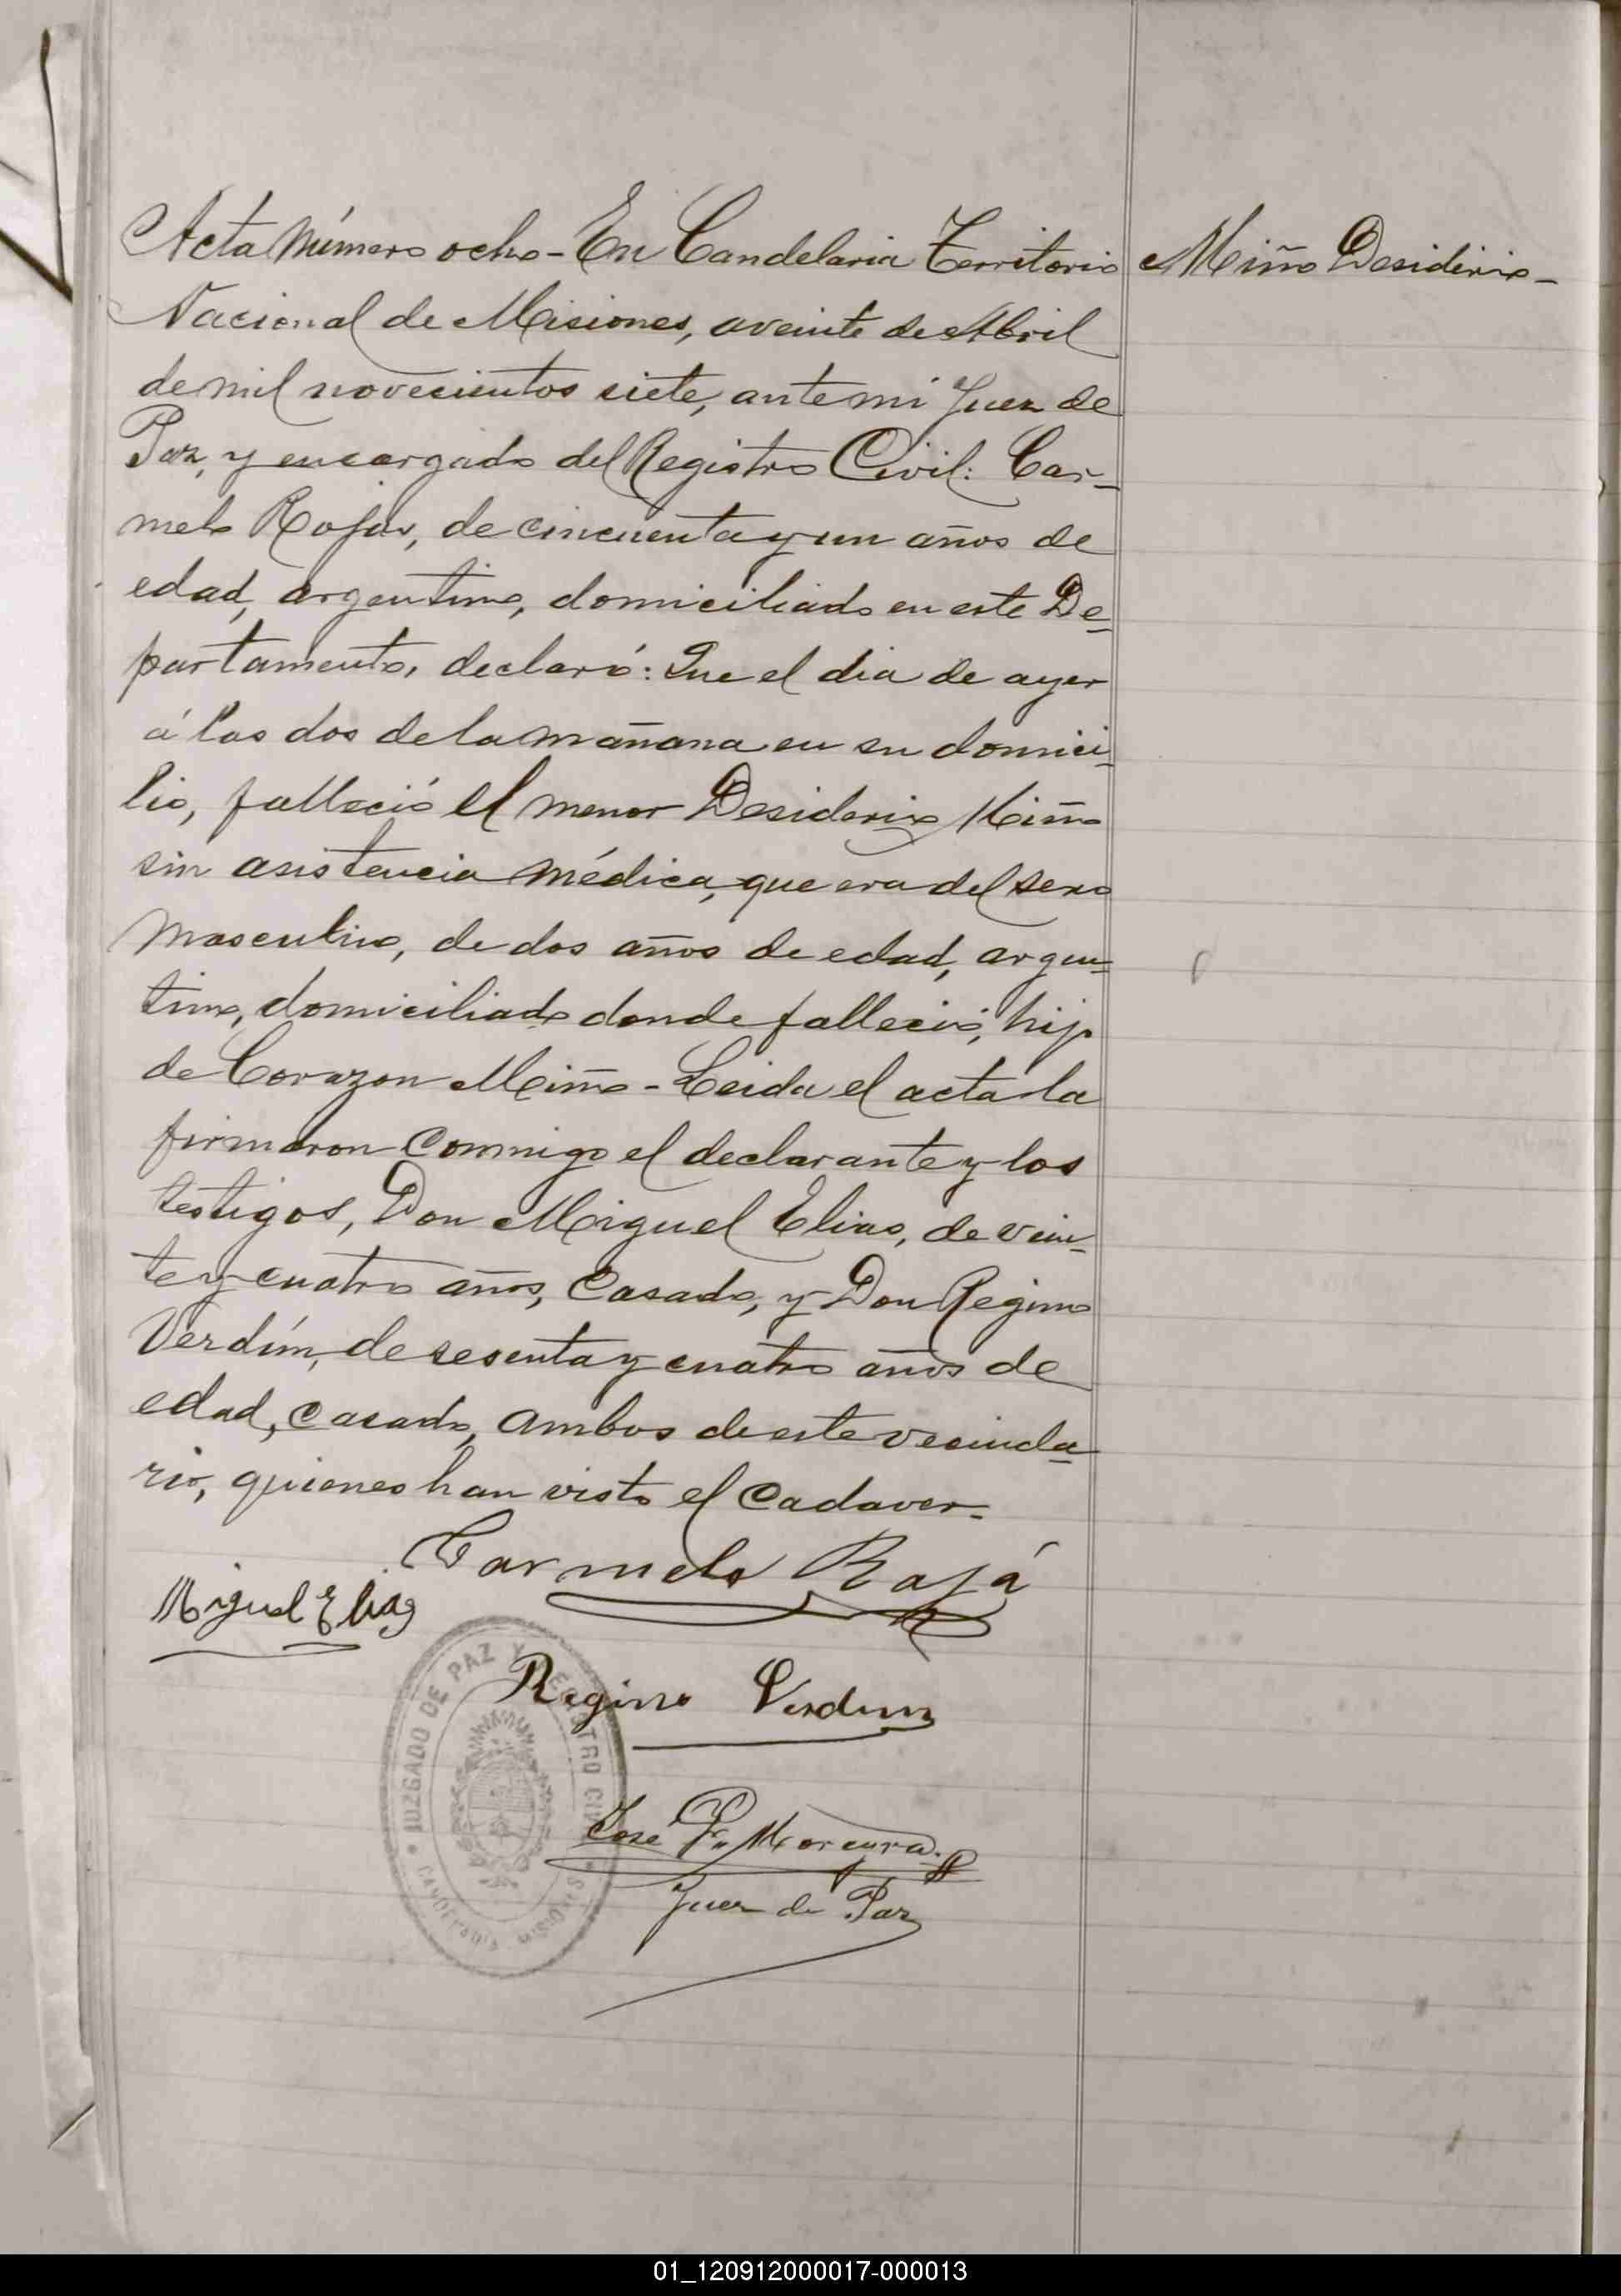 Acta Número ocho - En Candelaria Territorio
Miño Desiderio -
Nacional de Misiones, a veinte de Abril
de mil novecientos siete, ante mi Juez de
Paz, y encargado del Registro Civil: Car-
melo Rojas, de cincuenta y un años de
edad, argentino, domiciliado en este De-
partamento, declaró: Que el dia de ayer
á las dos de la mañana en su domici-
lio, falleció el menor Desiderio Miño
sin asistencia médica, que era del sexo
masculino, de dos años de edad, argen-
tino, domiciliado donde falleció, hijo
de Corazon Miño - Leida el acta la
firmaron conmigo el declarante y los
testigos, Don Miguel Elias, de vein-
te y cuatro años, casado, y Don Regino
Verdún, de sesenta y cuatro años de
edad, casado, ambos de este vecinda-
rio, quienes han visto el cadaver -
Carmelo Rajá
Miguel Elias
Regino Verdun
JUZGADO DE PAZ Y REGISTRO CIVIL
CANDELARIA MISIONES
José F. Moreyra
Juez de Paz
01_120912000017-000013